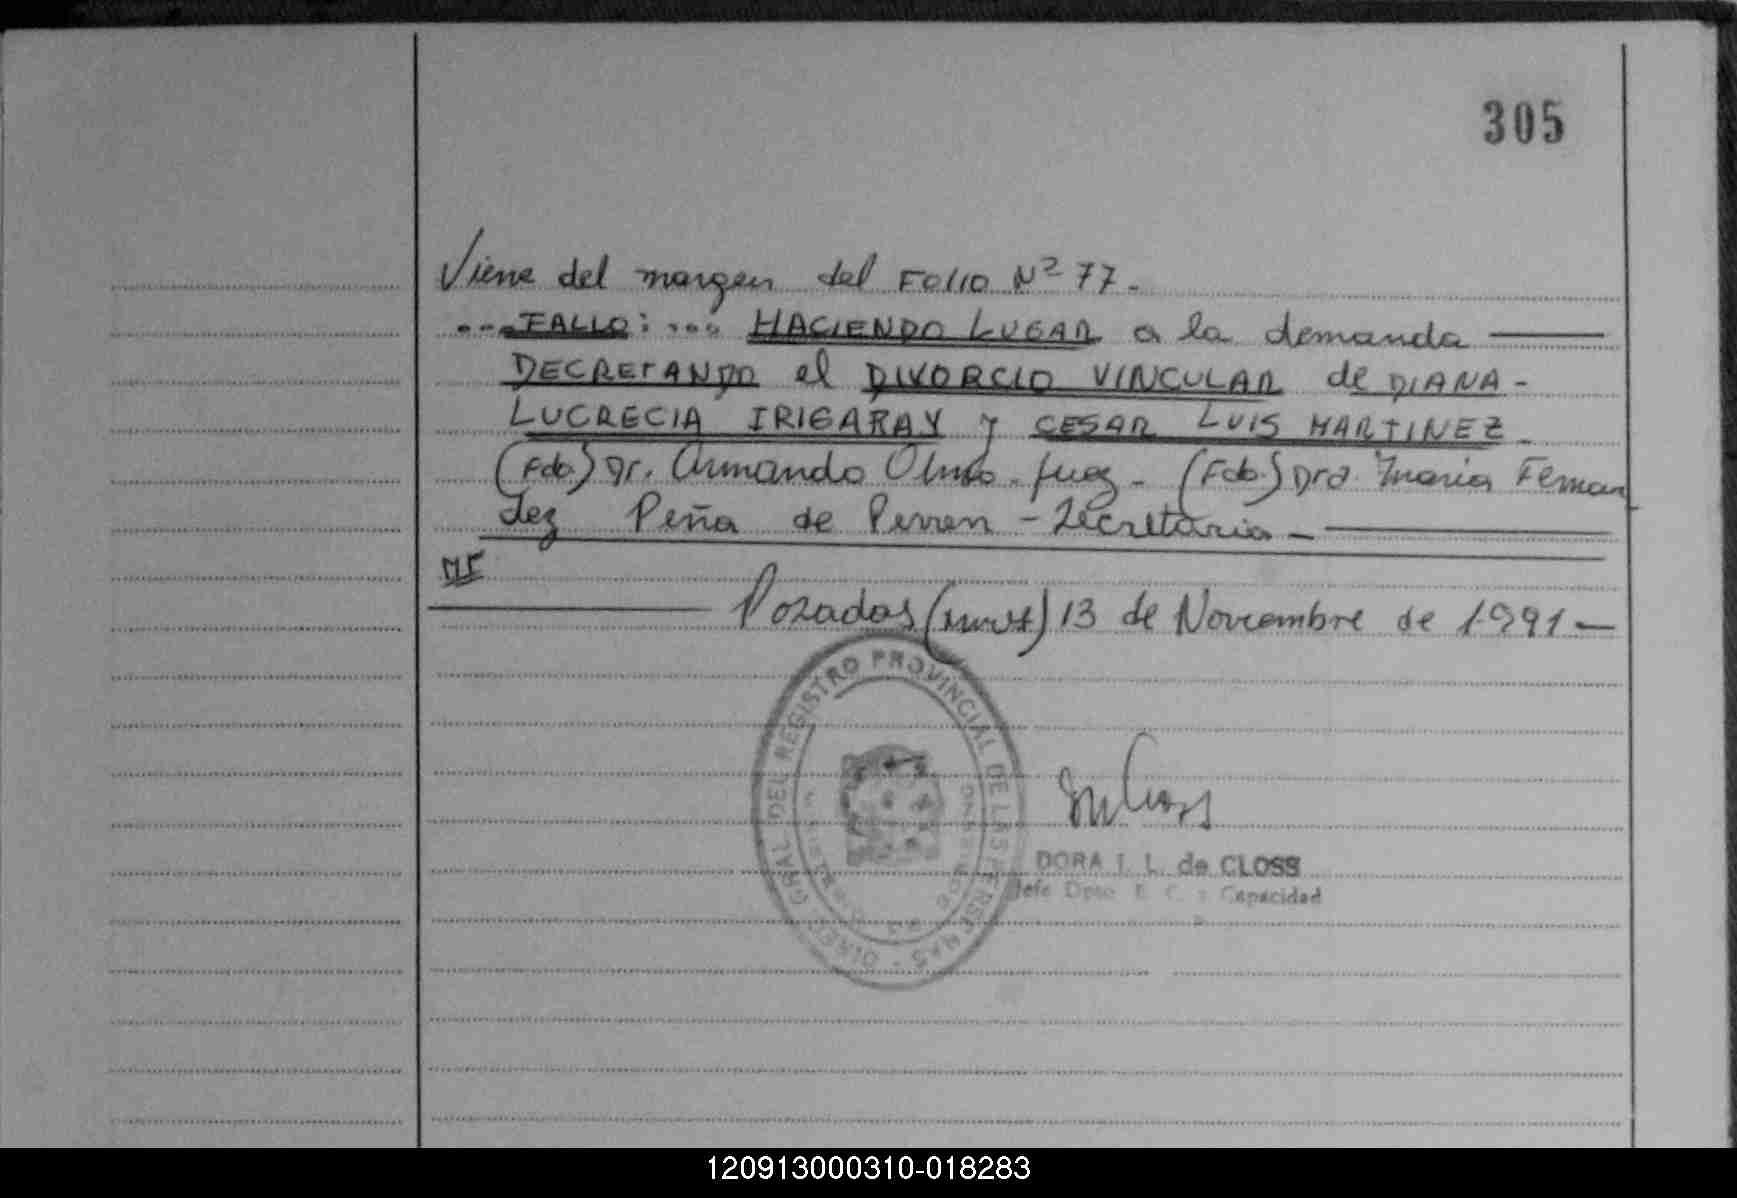 305
Viene del margen del FOLIO Nº 77.
...FALLO: ... HACIENDO LUGAR a la demanda
DECRETANDO el DIVORCIO VINCULAR de DIANA-
LUCRECIA IRIGARAY y CESAR LUIS MARTINEZ.
(Fdo.) Dr. Armando Olmo. Juez - (Fdo.) Dra. Maria Fernan
dez Peña de Perren - Secretaria -
Posadas (Mnes) 13 de Noviembre de 1991 -
DIREC. GRAL DEL REGISTRO PROVINCIAL DE LAS PERSONAS -
DORA I. L. de CLOSS
Jefe Dpto. E. C. y Capacidad
120913000310-018283